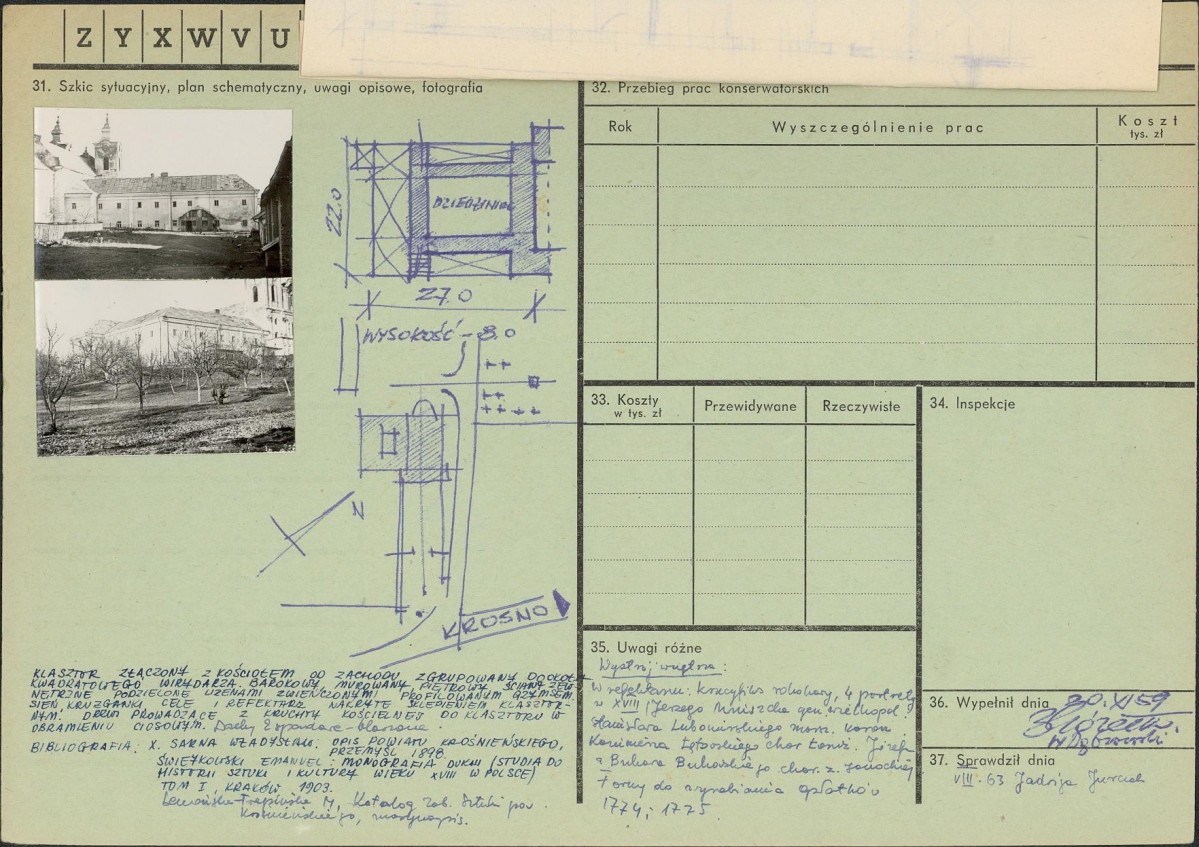 Z Y X W V U
31. Szkic sytuacyjny, plan schematyczny, uwagi opisowe, fotografia
DZIEDZINIEC
22.0
27.0
WYSOKOŚĆ - 8.0
N
KROSNO
KLASZTOR ZŁĄCZONY Z KOŚCIOŁEM OD ZACHODU ZGRUPOWANY DOOKOŁA
KWADRATOWEGO WIRYDARZA. BAROKOWY, MUROWANY, PIĘTROWY. ŚCIANY ZEW-
NĘTRZNE PODZIELONE LIZENAMI ZWIEŃCZONYMI PROFILOWANYM GZYMSEM.
SIEŃ, KRUŻGANKI, CELE I REFEKTARZ NAKRYTE SKLEPIENIEM KLASZTOR-
NYM. DRZWI PROWADZĄCE Z KRUCHTY KOŚCIELNEJ DO KLASZTORU W
OBRAMIENIU CIOSOWYM. Dachy 2 spadowe - blaszane
BIBLIOGRAFIA: X. SARNA WŁADYSŁAW: OPIS POWIATU KROŚNIEŃSKIEGO,
PRZEMYŚL 1898.
ŚWIEYKOWSKI EMANUEL: MONOGRAFIA DUKLI (STUDIA DO
HISTORII SZTUKI I KULTURY WIEKU XVIII W POLSCE)
TOM I, KRAKÓW 1903.
M, Katalog zab. Sztuki pow.
Krośnieńskiego, maszynopis.
32. Przebieg prac konserwatorskich
Rok Wyszczególnienie prac Koszt
tys. zł
33. Koszty
w tys. zł Przewidywane Rzeczywiste
34. Inspekcje
35. Uwagi różne
Wystrój wnętrza:
W refektarzu: krucyfiks rokokowy, 4 portrety
w XVIII (Jerzego Mniszcha gen. wielkopol.
Stanisława Lubomirskiego marsz. koron
Kazimierza chor
z Bukowa Bukowskiego chor. z.
formy do wyrabiania opłatków
1774 i 1775.
36. Wypełnił dnia 20.XI 59
37. Sprawdził dnia
VIII. 63 Jadwiga